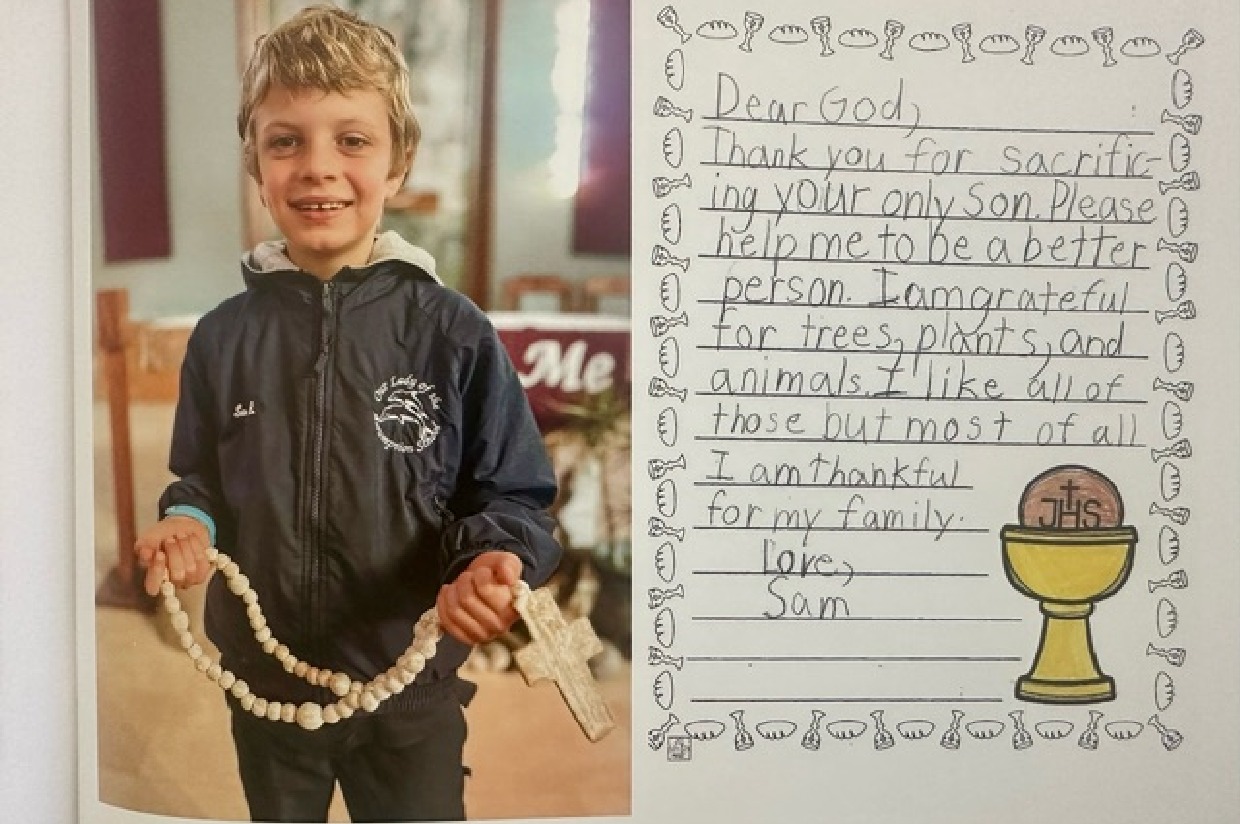 Me
Our Lady of the
Dear God,
Thank you for sacrific-
ing your only Son. Please
help me to be a better
person. I am grateful
for trees, plants, and
animals. I like all of
those but most of all
I am thankful
for my family.
Love,
Sam
JHS